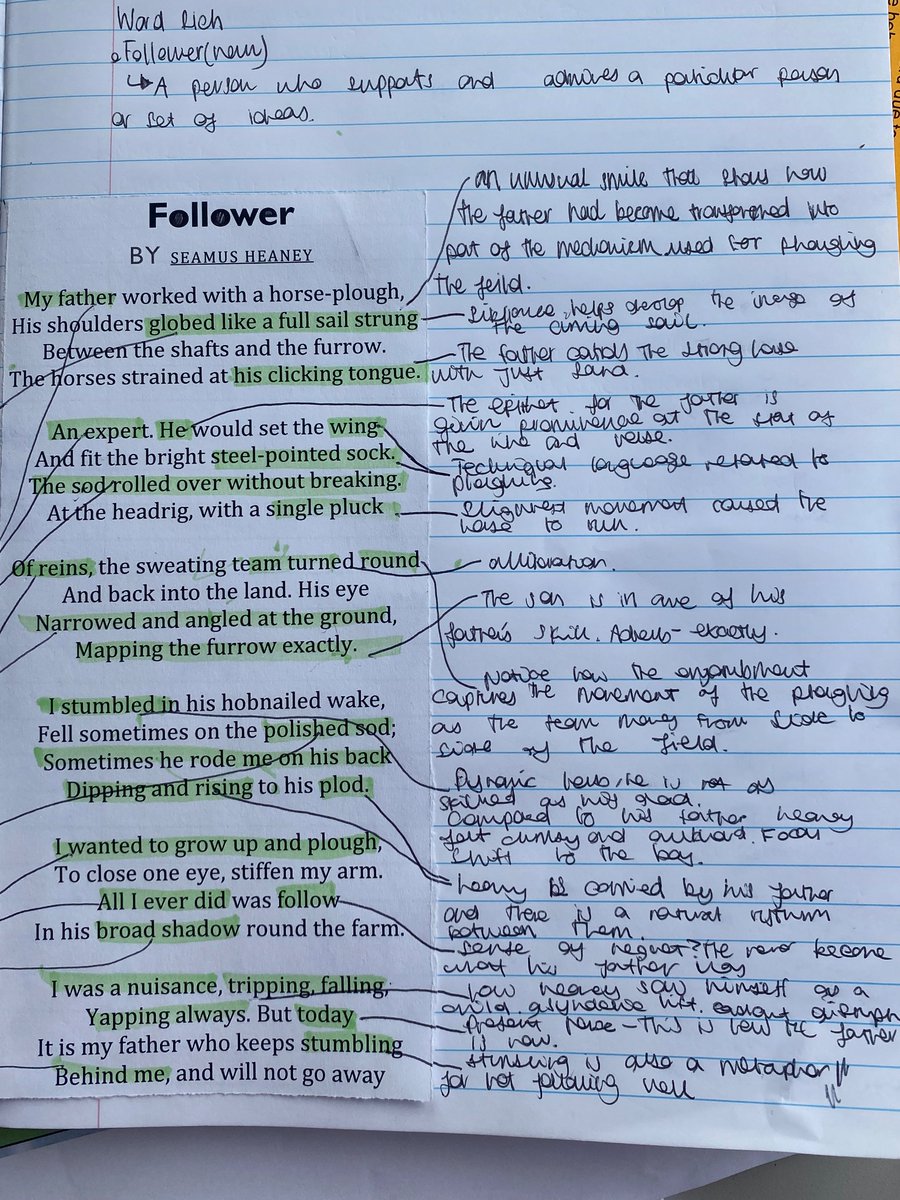 Word Rich
Follower (noun)
↳ A person who supports and admires a particular person
or set of ideas.
Follower
BY SEAMUS HEANEY
My father worked with a horse-plough,
His shoulders globed like a full sail strung
Between the shafts and the furrow.
The horses strained at his clicking tongue.
An expert. He would set the wing
And fit the bright steel-pointed sock.
The sod rolled over without breaking.
At the headrig, with a single pluck
Of reins, the sweating team turned round
And back into the land. His eye
Narrowed and angled at the ground,
Mapping the furrow exactly.
I stumbled in his hobnailed wake,
Fell sometimes on the polished sod;
Sometimes he rode me on his back
Dipping and rising to his plod.
I wanted to grow up and plough,
To close one eye, stiffen my arm.
All I ever did was follow
In his broad shadow round the farm.
I was a nuisance, tripping, falling,
Yapping always. But today
It is my father who keeps stumbling
Behind me, and will not go away
an unusual smile that shows how
the father had become transformed into
part of the mechanism used for ploughing
the feild.
Sibilance helps develop the image of
the sail.
The father controls the strong horse
with just sound.
The epithet for the father is
given prominence at the start of
the line and verse.
Technical language related to
ploughing.
Slightest movement caused the
horse to run.
alliteration.
The son is in awe of his
father's skill. Adverb - exactly.
Notice how the enjambment
captures the movement of the ploughing
as the team moves from side to
side of the field.
Dynamic verbs, he is not as
skilled as his dad.
Compared to his father heaney
felt clumsy and awkward. Focus
shift to the boy.
heaney is carried by his father
and there is a natural rythmn
between them.
Sense of regret? He never became
what his father was
how heaney saw himself as a
child. asyndetic list.
Present tense - This is how the father
is now.
stumbling is also a metaphor
for not following well